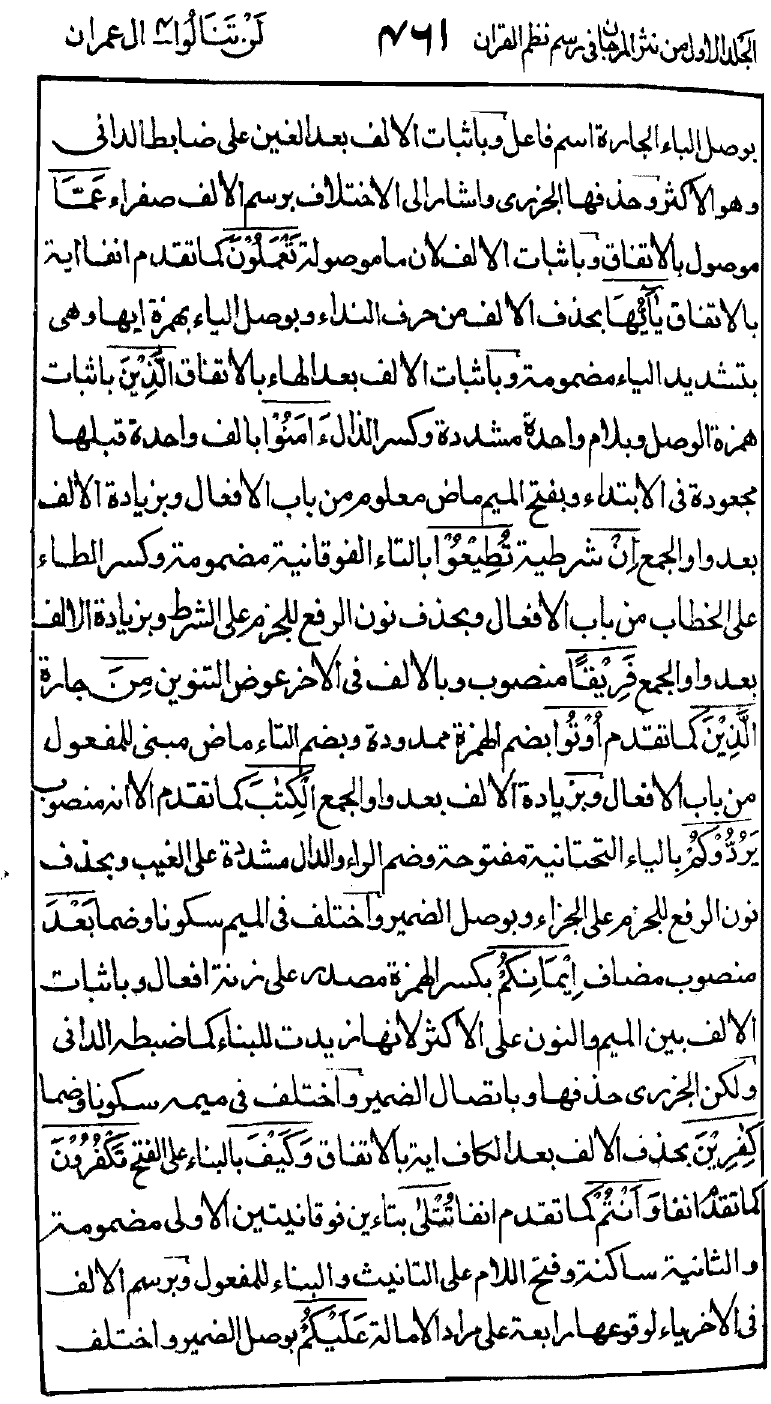 الجلد الاول من نثر المرجان فى رسم نظم القران ٤٦١ لَنْ تَنَالُوا ٤ ال عمران
بوصل الباء الجارة اسم فاعل وباثبات الالف بعد الغين على ضابط الدانى
وهو الاكثر وحذفها الجزرى واشار الى الاختلاف برسم الالف صفراء عَمَّا
موصول بالاتفاق وباثبات الالف لان ما موصولة تَعْمَلُوْنَ كما تقدم انفا اية
بالاتفاق يٰاَيُّهَا بحذف الالف من حرف النداء وبوصل الياء بهمزة ايها وهى
بتشديد الياء مضمومة وباثبات الالف بعد الهاء بالاتفاق الَّذِيْنَ باثبات
همزة الوصل وبلام واحدة مشددة وكسر الذال ءَامَنُوْا بالف واحدة قبلها
مجعودة فى الابتداء وبفتح الميم ماض معلوم من باب الافعال وبزيادة الالف
بعد واو الجمع اِنْ شرطية تُطِيْعُوْا بالتاء الفوقانية مضمومة وكسر الطاء
على الخطاب من باب الافعال وبحذف نون الرفع للجزم على الشرط وبزيادة الالف
بعد واو الجمع فَرِيْقًا منصوب وبالالف فى الاخر عوض التنوين مِنَ جارة
الَّذِيْنَ كما تقدم اُوْتُوا بضم الهمزة ممدودة وبضم التاء ماض مبنى للمفعول
من باب الافعال وبزيادة الالف بعد واو الجمع الْكِتٰبَ كما تقدم الا انه منصوب
يَرُدُّوْكُمْ بالياء التحتانية مفتوحة وضم الراء والدال مشددة على الغيب وبحذف
نون الرفع للجزم على الجزاء وبوصل الضمير واختلف فى الميم سكونا وضما بَعْدَ
منصوب مضاف اِيْمَانِكُمْ بكسر الهمزة مصدر على زنة افعال وباثبات
الالف بين الميم والنون على الاكثر لانها زيدت للبناء كما ضبطه الدانى
ولكن الجزرى حذفها وباتصال الضمير واختلف فى ميمه سكونا وضما
كٰفِرِيْنَ بحذف الالف بعد الكاف اية بالاتفاق وَكَيْفَ بالبناء على الفتح تَكْفُرُوْنَ
كما تقدم انفا وَاَنْتُمْ كما تقدم انفا تُتْلٰى بتاءين فوقانيتين الاولى مضمومة
والثانية ساكنة وفتح اللام على التانيث والبناء للمفعول وبرسم الالف
فى الاخر ياء لوقوعها رابعة على مراد الامالة عَلَيْكُمْ بوصل الضمير واختلف